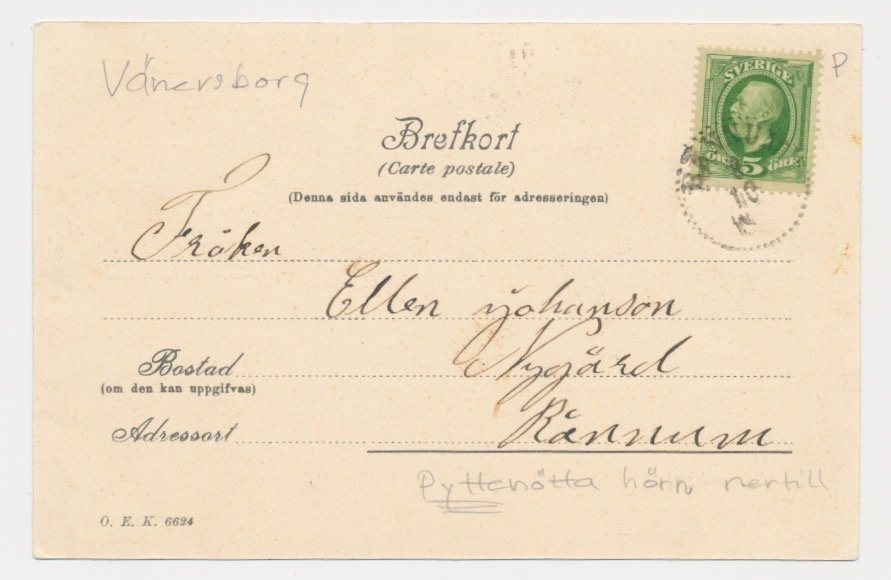 Vänersborg
P
SVERIGE
5 ÖRE
Brefkort
(Carte postale)
(Denna sida användes endast för adresseringen)
Fröken
Ellen Johanson
Nygård
Bostad
(om den kan uppgifvas)
Adressort
Rännum
Pyttenötta hörn nertill
O. E. K. 6624